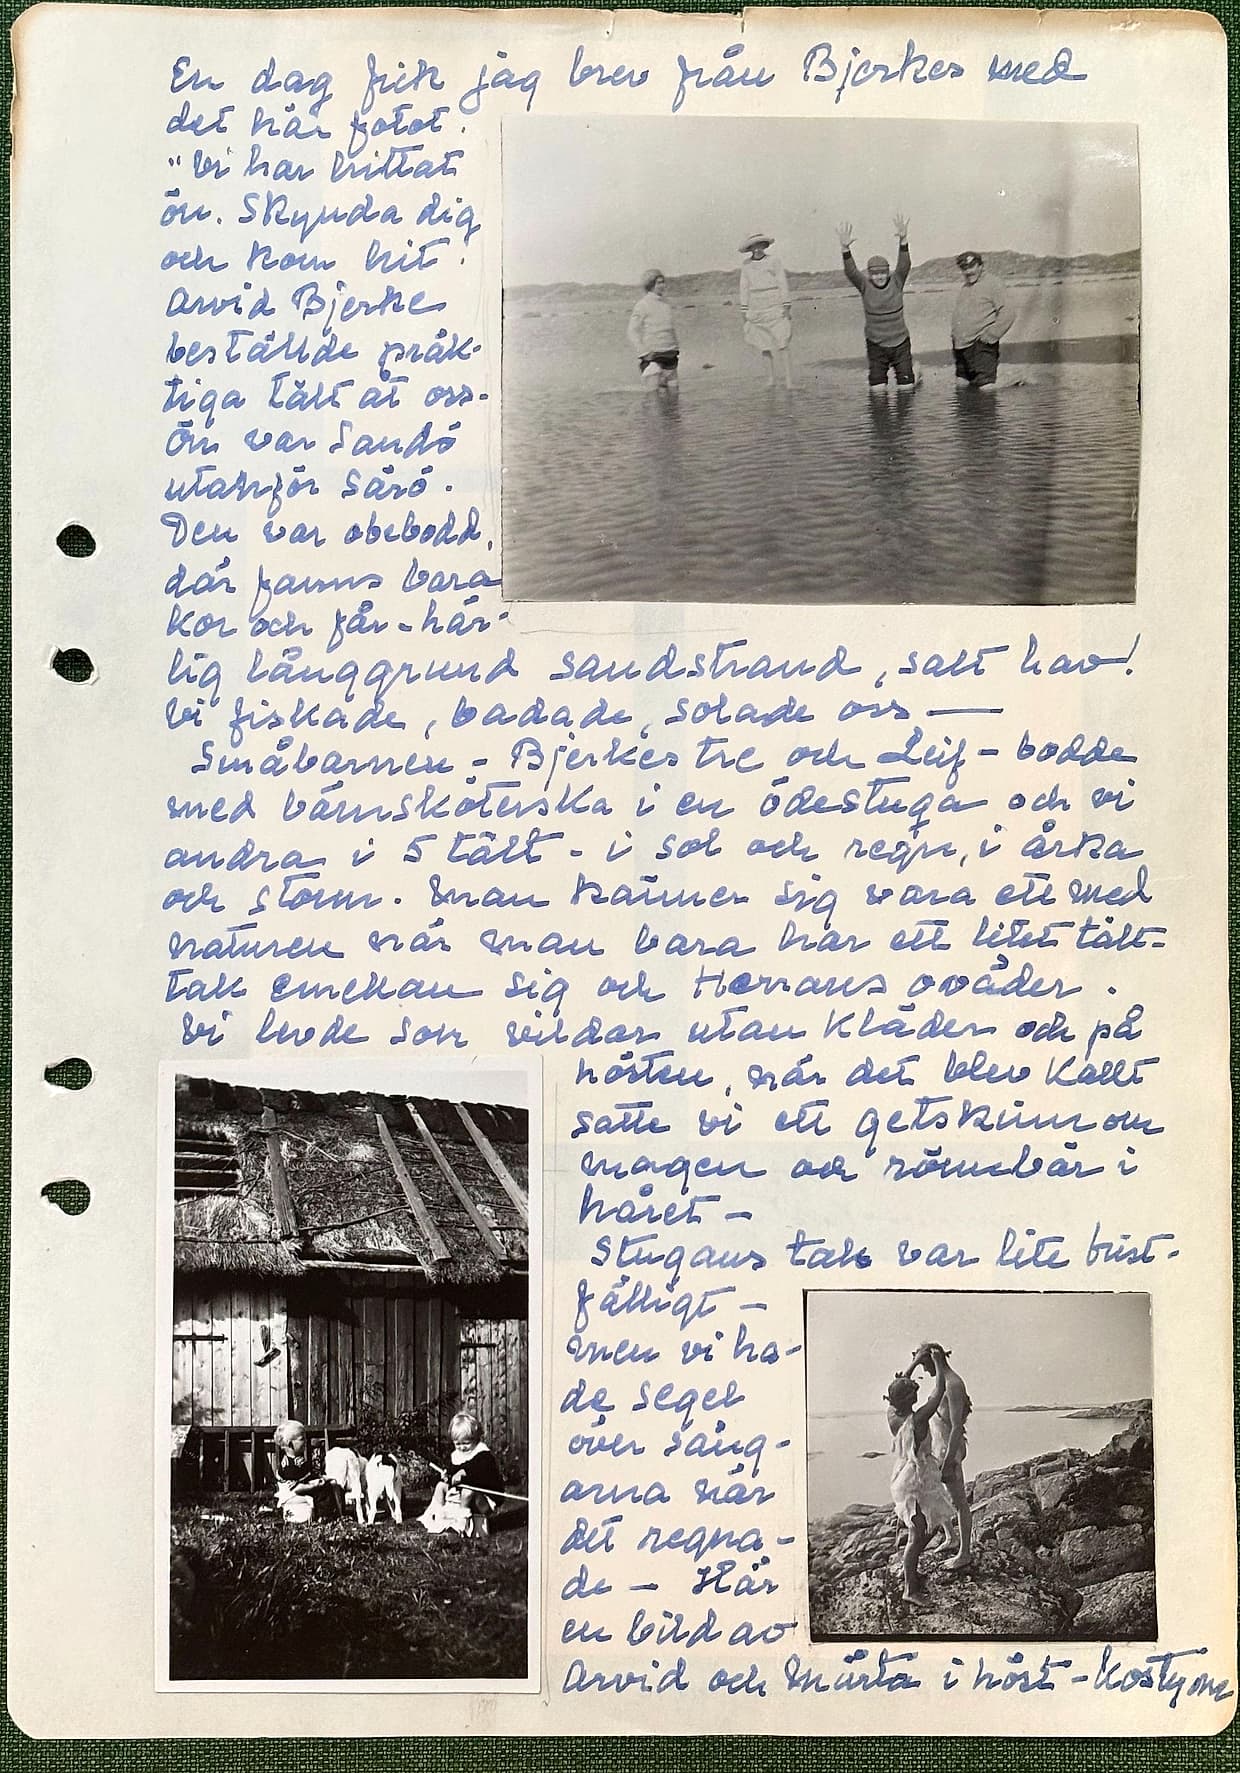 En dag fick jag brev från Bjerkes med
det här fotot.
"Vi har hittat
ön. Skynda dig
och kom hit!
Arvid Bjerke
beställde präk-
tiga tält åt oss.
Ön var Sandö
utanför Särö.
Den var obebodd,
där fanns bara
kor och får - här-
lig långgrund sandstrand, salt hav!
Vi fiskade, badade, solade oss —
Småbarnen - Bjerkes tre och Leif - bodde
med barnsköterska i en ödestuga och vi
andra i 5 tält - i sol och regn, i åska
och storm. Man känner sig vara ett med
naturen när man bara har ett litet tält-
tak emellan sig och Herrans oväder.
Vi levde som vildar utan kläder och på
hösten, när det blev kallt
satte vi ett getskinn om
magen och rönnbär i
håret -
Stugans tak var lite bris-
fälligt -
men vi ha-
de segel
över säng-
arna när
det regna-
de - Här
en bild av
Arvid och Märta i höst-kostym